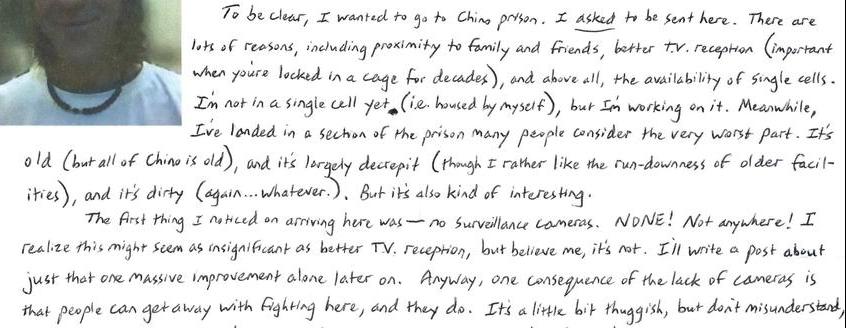 To be clear, I wanted to go to Chino prison. I asked to be sent here. There are
lots of reasons, including proximity to family and friends, better T.V. reception (important
when you're locked in a cage for decades), and above all, the availability of single cells.
I'm not in a single cell yet (i.e. housed by myself), but I'm working on it. Meanwhile,
I've landed in a section of the prison many people consider the very worst part. It's
old (but all of Chino is old), and it's largely decrepit (though I rather like the run-downness of older facil-
ities), and it's dirty (again...whatever.). But it's also kind of interesting.
The first thing I noticed on arriving here was — no surveillance cameras. NONE! Not anywhere! I
realize this might seem as insignificant as better TV. reception, but believe me, it's not. I'll write a post about
just that one massive improvement alone later on. Anyway, one consequence of the lack of cameras is
that people can get away with fighting here, and they do. It's a little bit thuggish, but don't misunderstand,